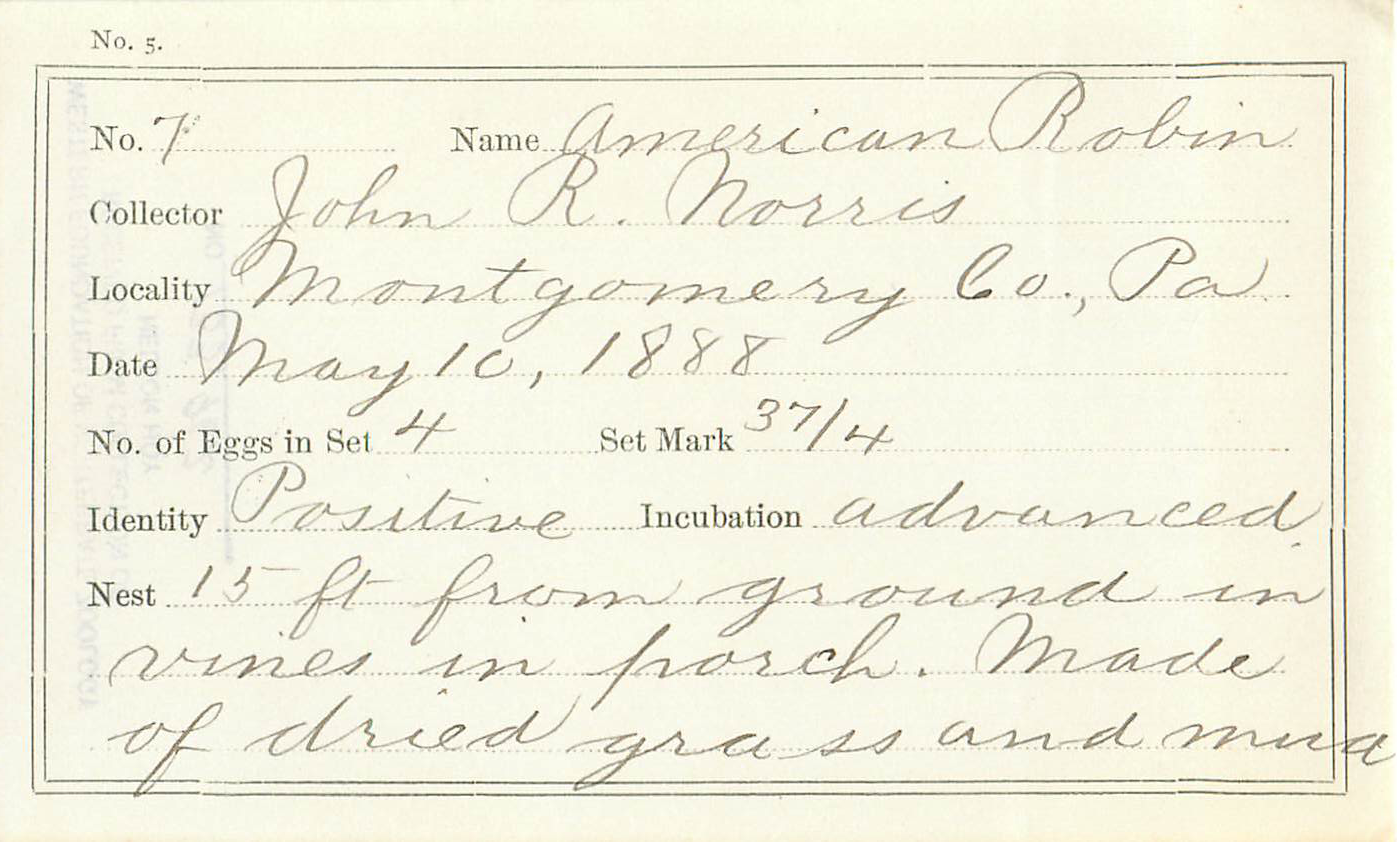 No. 5.
No. 7 Name American Robin
Collector John R. Norris
Locality Montgomery Co., Pa
Date May 10, 1888
No. of Eggs in Set 4 Set Mark 37/4
Identity Positive Incubation advanced.
Nest 15 ft from ground in
vines in porch. Made
of dried grass and mud